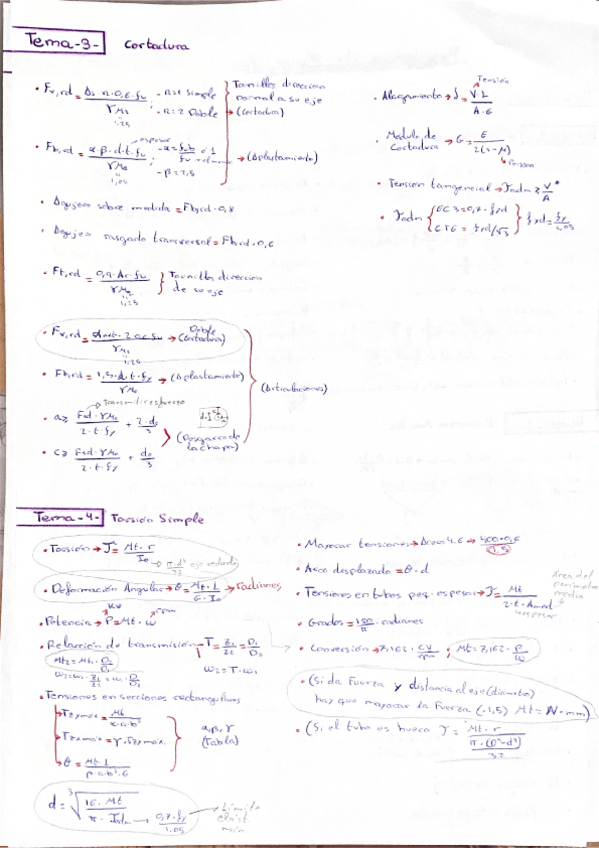 Tema-3- Cortadura
• Fv,rd = As·n·0,6·fu / γM2 ; - n=1 simple - n=2 Doble
1,25
} Tornillos direccion normal a su eje (Cortadura)
• Fb,rd = α·β·d·t·fu / γM2 ; → espesor
- α = fub / fu ó 1
- β = 2,5
1,25
→ (Aplastamiento)
• Agujeros sobre medida = Fb,rd·0,8
• Agujero rasgado transversal = Fb,rd·0,6
• Ft,rd = 0,9·Ar·fu / γM2 } Tornillos direccion de su eje
1,25
• Fv,rd = · 2 · 0,6 fu / γM2 → Doble (Cortadura)
1,25
• Fb,rd = 1,5·d·t·fy / γM0 → (Aplastamiento)
} (Articulaciones)
→ Transmitir esfuerzo
• a ≥ Fsd·γM0 / 2·t·fy + 2·d0 / 3
• c ≥ Fsd·γM0 / 2·t·fy + d0 / 3
} (Desgarro de la chapa)
Tensión
• Alargamiento → δ = V·l / A·G
• Modulo de Cortadura → G = E / 2(1-μ)
→ Poisson
• Tension tangencial → Jadm ≥ V* / A
• Jadm { EC3 = 0,7·fyd
CTE = fyd/√3 } fyd = fy / 1,05
Tema-4- Torsión Simple
• Torsión → J = Mt·r / Io
→ π·d⁴ / 32 eje redondo
• Deformación Angular → θ = Mt·l / G·Io → radianes
kW rpm
• Potencia → P = Mt·ω
• Relación de transmisión → T = Z1 / Z2 = D1 / D2
Mt2 = Mt1·D2 / D1
ω2 = ω1·Z1 / Z2 = ω1·D1 / D2
ω2 = T·ω1
• Tensiones en secciones rectangulares
→ Tzymax = Mt / α·a·b²
→ Tzxmax = γ·Tzymax
→ θ = Mt·l / β·a·b³·G
} α, β, γ (Tabla)
d = ³√ 16·Mt / π·Jadm → 0,7·fy / 1,05 → Limite elást. min
• Mayorar tensiones → Acero 4.6 → 400·0,6 / 1,5
• Arco desplazado = θ·d
• Tensiones en tubos peq. espesor → J = Mt / 2·t·Amed
espesor
Area del perimetro medio
• Grados = 180 / π · radianes
• Conversión → 7,162·CV / rpm ; Mt = 7,162·P / ω
• (Si da Fuerza y distancia al eje (diametro)
hay que mayorar la Fuerza (·1,5) Mt = N·mm)
• (Si el tubo es hueco J = Mt·r / π·(D⁴-d⁴) / 32